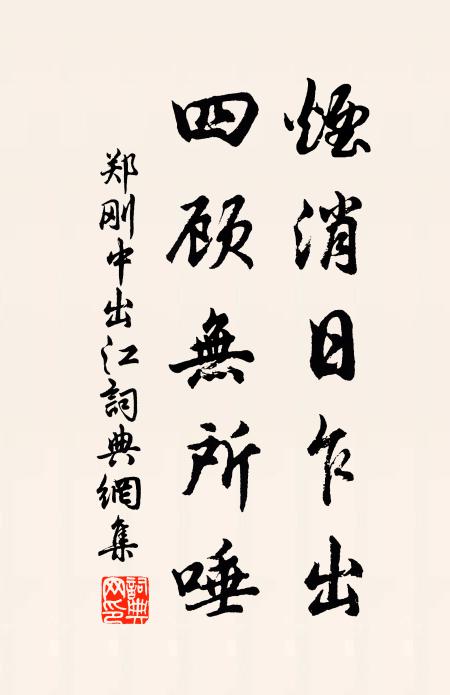 煙消日乍出
四顾無所唾
郑刚中出江詞典網集
詞典网印